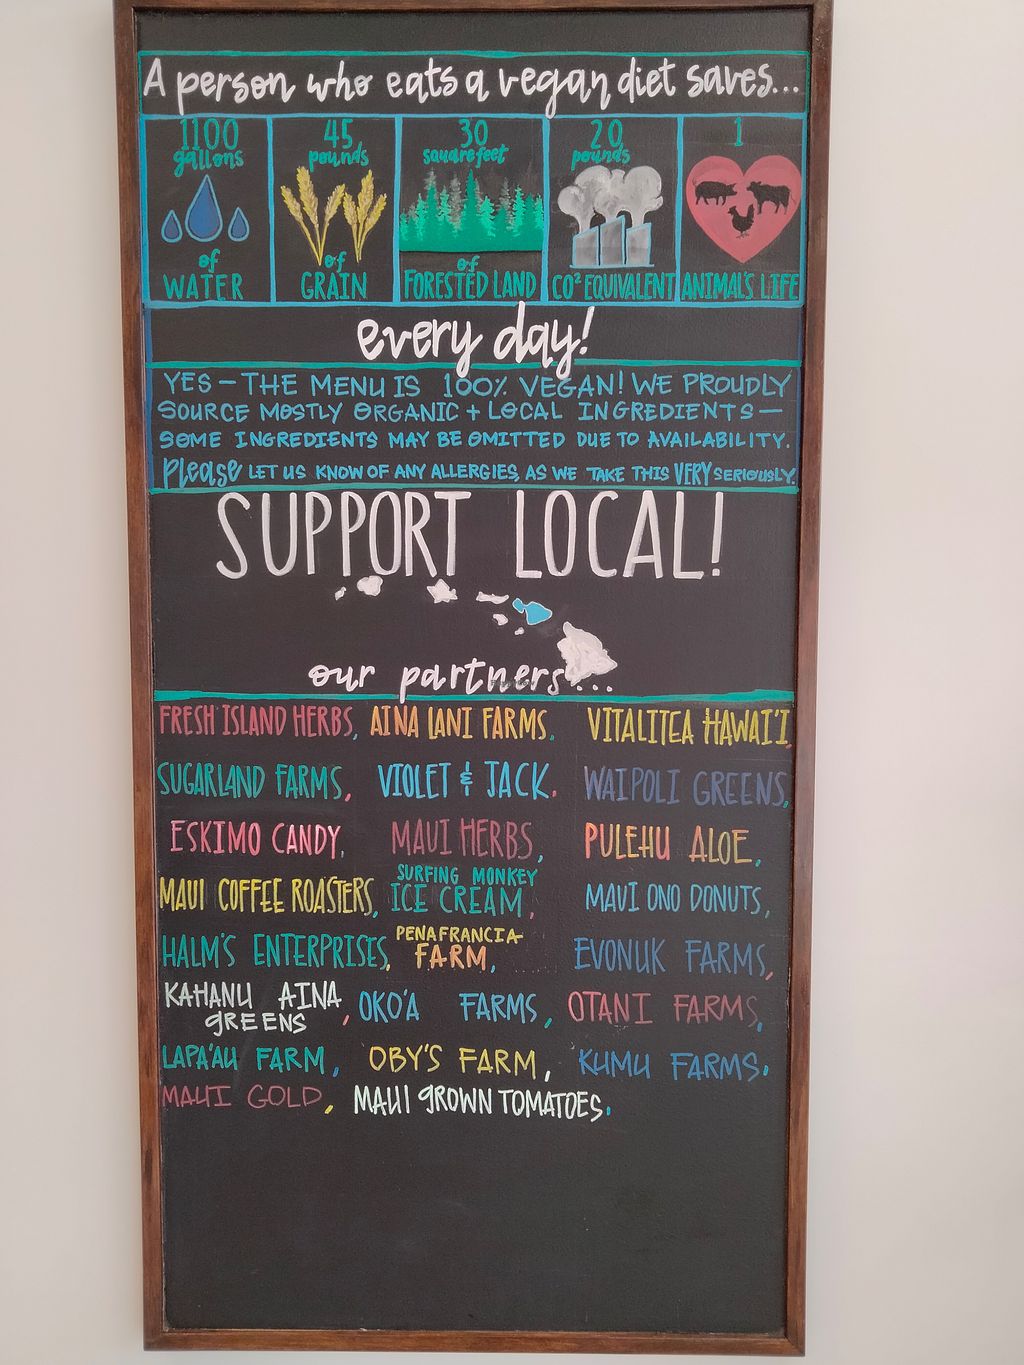 A person who eats a vegan diet saves...
1100 gallons of WATER
45 pounds of GRAIN
30 square feet of FORESTED LAND
20 pounds CO² EQUIVALENT
1 ANIMAL'S LIFE
every day!
YES - THE MENU IS 100% VEGAN! WE PROUDLY
SOURCE MOSTLY ORGANIC + LOCAL INGREDIENTS -
SOME INGREDIENTS MAY BE OMITTED DUE TO AVAILABILITY.
Please LET US KNOW OF ANY ALLERGIES, AS WE TAKE THIS VERY SERIOUSLY.
SUPPORT LOCAL!
our partners...
FRESH ISLAND HERBS, AINA LANI FARMS, VITALITEA HAWAI'I,
SUGARLAND FARMS, VIOLET & JACK, WAIPOLI GREENS,
ESKIMO CANDY, MAUI HERBS, PULEHU ALOE,
MAUI COFFEE ROASTERS, SURFING MONKEY ICE CREAM, MAUI ONO DONUTS,
HALM'S ENTERPRISES, PENAFRANCIA FARM, EVONUK FARMS,
KAHANU AINA GREENS, OKO'A FARMS, OTANI FARMS,
LAPA'AU FARM, OBY'S FARM, KUMU FARMS.
MAUI GOLD, MAUI GROWN TOMATOES.